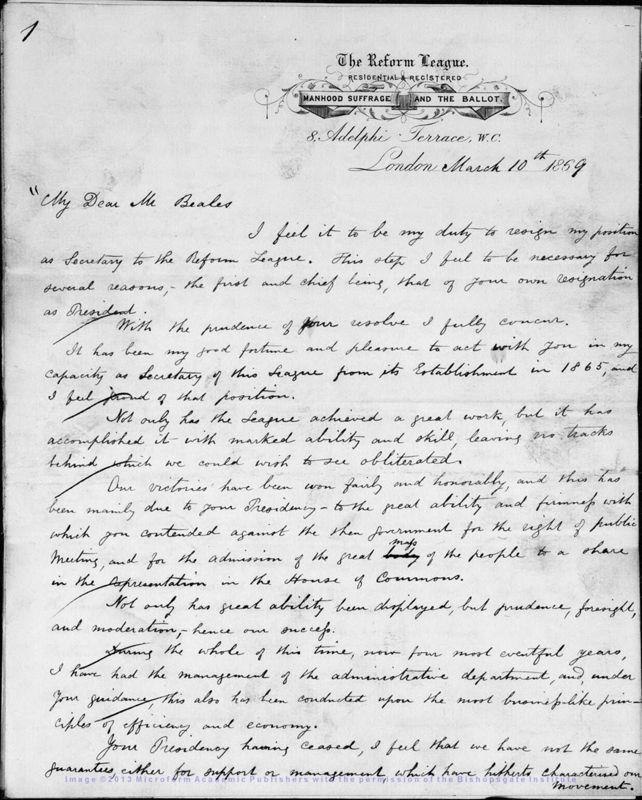 1
The Reform League.
RESIDENTIAL & REGISTERED
MANHOOD SUFFRAGE AND THE BALLOT.
8, Adelphi Terrace, W.C.
London March 10th 1869
"My Dear Mr Beales
I feel it to be my duty to resign my position
as Secretary to the Reform League. This step I feel to be necessary for
several reasons,- the first and chief being, that of your own resignation
as President.
With the prudence of your resolve I fully concur.
It has been my good fortune and pleasure to act with you in my
capacity as Secretary of this League from its Establishment in 1865, and
I feel proud of that position.
Not only has the League achieved a great work, but it has
accomplished it with marked ability and skill, leaving no tracks
behind which we could wish to see obliterated.
Our victories have been won fairly and honorably, and this has
been mainly due to your Presidency - to the great ability and firmness with
which you contended against the then government for the right of public
Meeting, and for the admission of the great body mass of the people to a share
in the representation in the House of Commons.
Not only has great ability been displayed, but prudence, foresight,
and moderation,- hence our success.
During the whole of this time, now four most eventful years,
I have had the management of the administrative department, and, under
your guidance, this also has been conducted upon the most business-like prin-
ciples of efficiency and economy.
Your Presidency having ceased, I feel that we have not the same
guarantees either for support or management which have hitherto characterised our
movement.
Image ©2013 Microform Academic Publishers with the permission of the Bishopsgate Institute